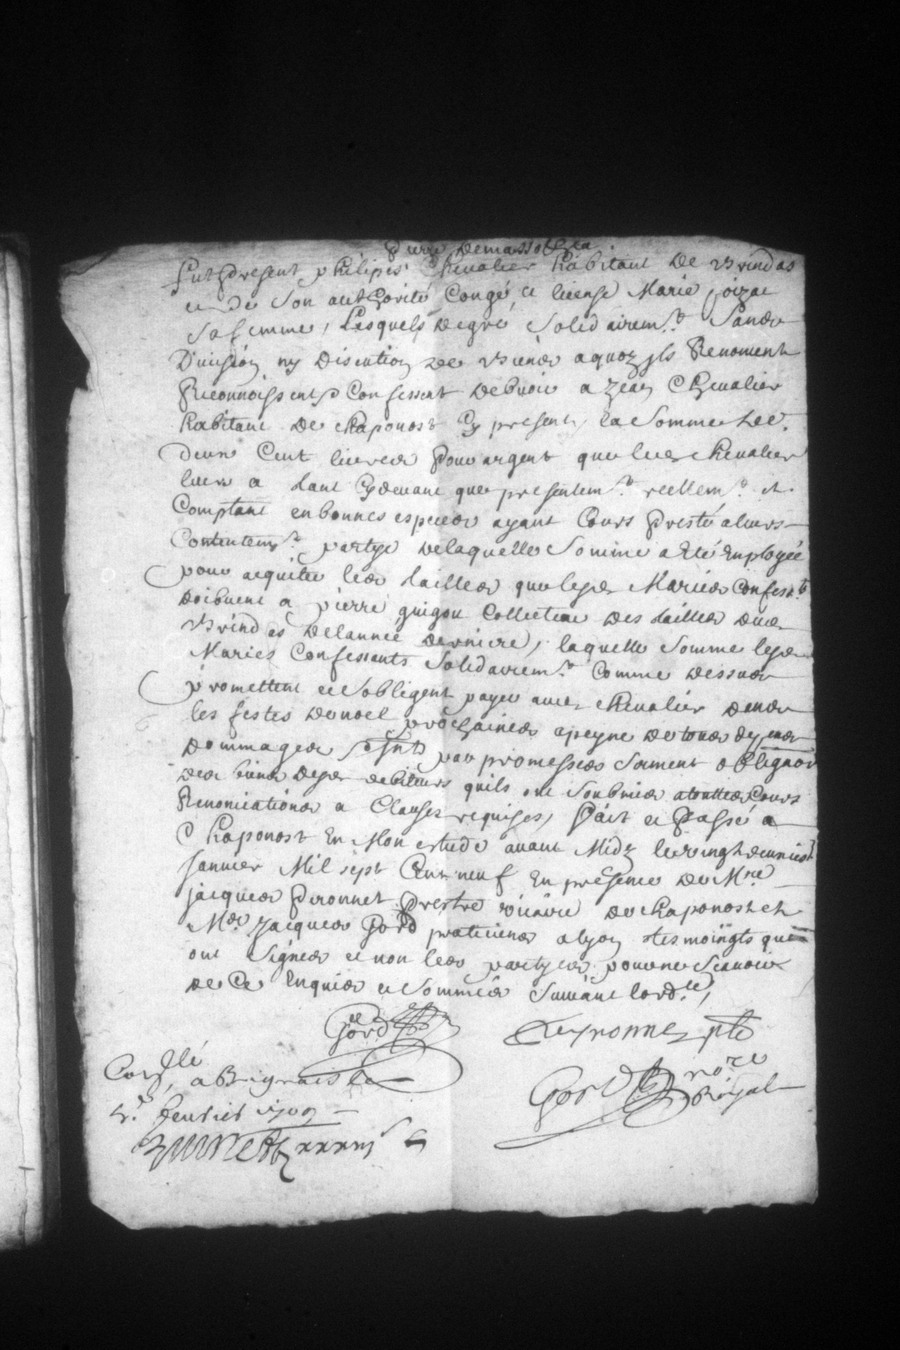 Fut present philipes Chevalier habitant de Brindas
et de son authorité Congé et license Marie
sa femme, Lesquels de gré solidairemt. sans
Division ny discution de biens a quoy ils Renoncent
Reconnoissent & Confessent debvoir a Jean Chevalier
habitant de chaponost Cy present, la somme de
deux Cent livres pour argent que led. chevalier
leur a tant Cydevant que presentemt. reellemt. et
Comptant en bonnes especes ayant Cours presté a leurs
Contentemt. partye de laquelle somme a Eté Employée
pour acquiter les tailles que lesd. Mariés Confessts.
doibvent a pierre guigou Collecteur des tailles dud.
Brindas de lannée derniere, laquelle somme lesd.
Mariés Confessants solidairemt. Comme dessus
promettent et sobligent payer aud. chevalier dans
les festes de noel prochaines a peyne de tous despens
dommages par promesses serment obligaon.
des biens desd. debiteurs quils ont soubmies a touttes Cours
Renonciationes a Clauses requises, fait et passé a
Chaponost En Mon estude avant Midy le vingt deuxiesme
janvier Mil sept Cent neuf En presence de Mre.
jacques Peronnet prestre vicaire de chaponost et
Mr. Jacques Gord praticien a lyon tesmoingts qui
ont signés et non les partyes pour ne scavoir
de Ce Enquies et sommés suivant lordce.
Gord
Peyronnet ptre
Gord nore Royal
Conllé
a Brignais le
fevrier 1709